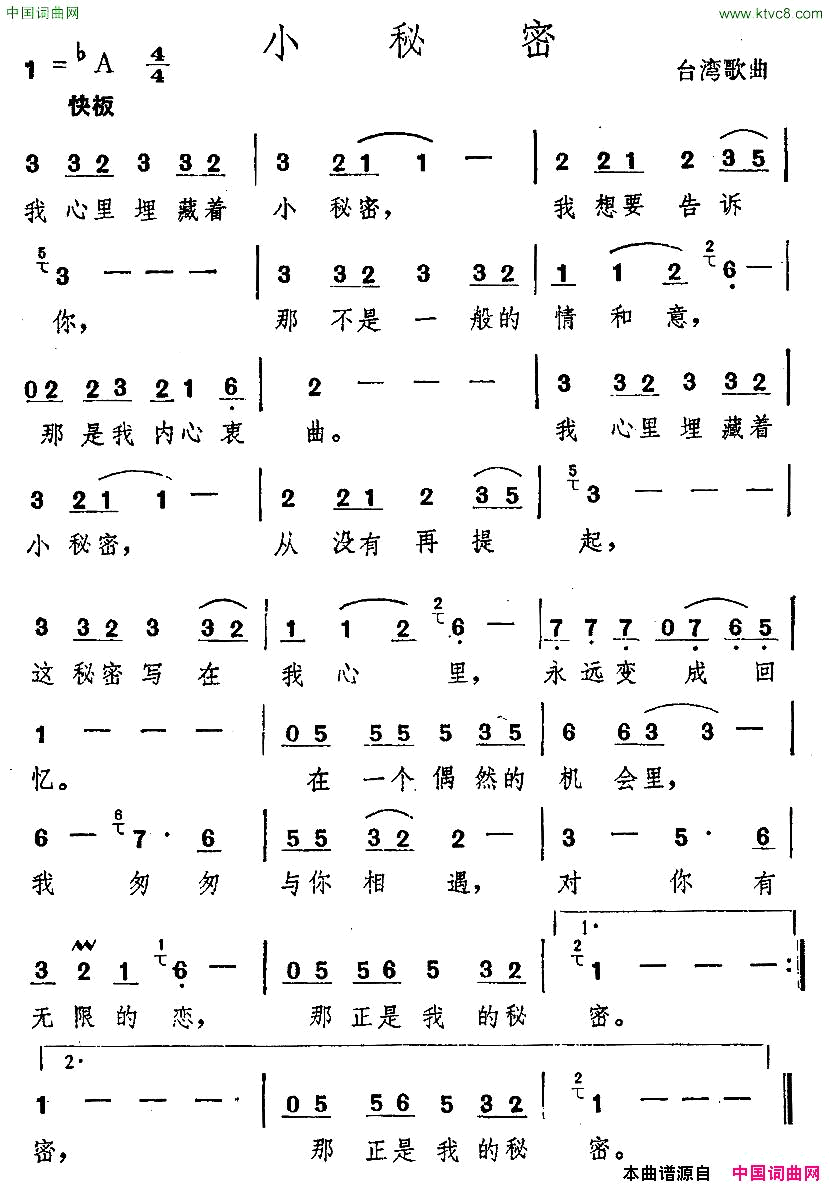 中国词曲网 www.ktvc8.com
小秘密
1=♭A 4/4 台湾歌曲
快板
3 32 3 32 | 3 21 1 — | 2 221 2 35 |
我 心里 埋 藏着 小 秘密, 我 想要 告 诉
5 3 — — — | 3 332 3 332 | 1 1 2 2 6 — |
你, 那 不是 一 般的 情 和 意,
02 23 21 6 | 2 — — — | 3 332 3 332 |
那 是我 内心 衷 曲。 我 心里 埋 藏着
3 21 1 — | 2 221 2 35 | 5 3 — — |
小 秘密, 从 没有 再 提 起,
3 332 3 32 | 1 1 2 2 6 — | 7 7 7 07 6 5 |
这 秘密 写 在 我 心 里, 永 远 变 成 回
1 — — — | 05 55 5 35 | 6 63 3 — |
忆。 在 一个 偶 然的 机 会里,
6 — 6 7· 6 | 55 32 2 — | 3 — 5· 6 |
我 匆 匆 与你 相 遇, 对 你 有
3 2 1 1 6 — | 05 56 5 32 | 1· 2 1 — — — :||
无 限 的 恋, 那 正是 我 的秘 密。
2·
1 — — — | 05 56 5 32 | 2 1 — — — ||
密, 那 正是 我 的秘 密。
本曲谱源自 中国词曲网